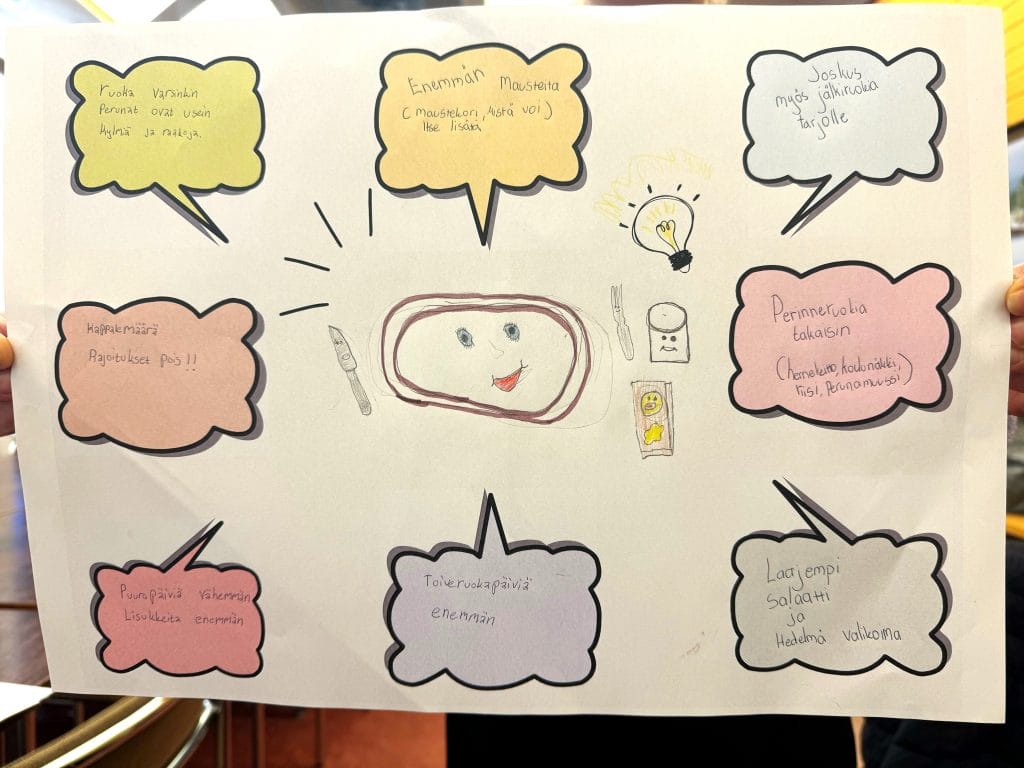 ruoka varsinkin
Perunat ovat usein
kylmiä ja raakoja.
Enemmän Mausteita
(maustekori, mistä voi)
Itse lisätä
Joskus
myös jälkiruokia
tarjolle
Kappalemäärä
Rajoitukset pois!!
Perinneruokia
takaisin
(hernekeitto, koulunäkki,
riisi, perunamuussi)
Puuropäiviä vähemmän
Lisukkeita enemmän
Toiveruokapäiviä
enemmän
Laajempi
salaatti
ja
Hedelmä valikoima